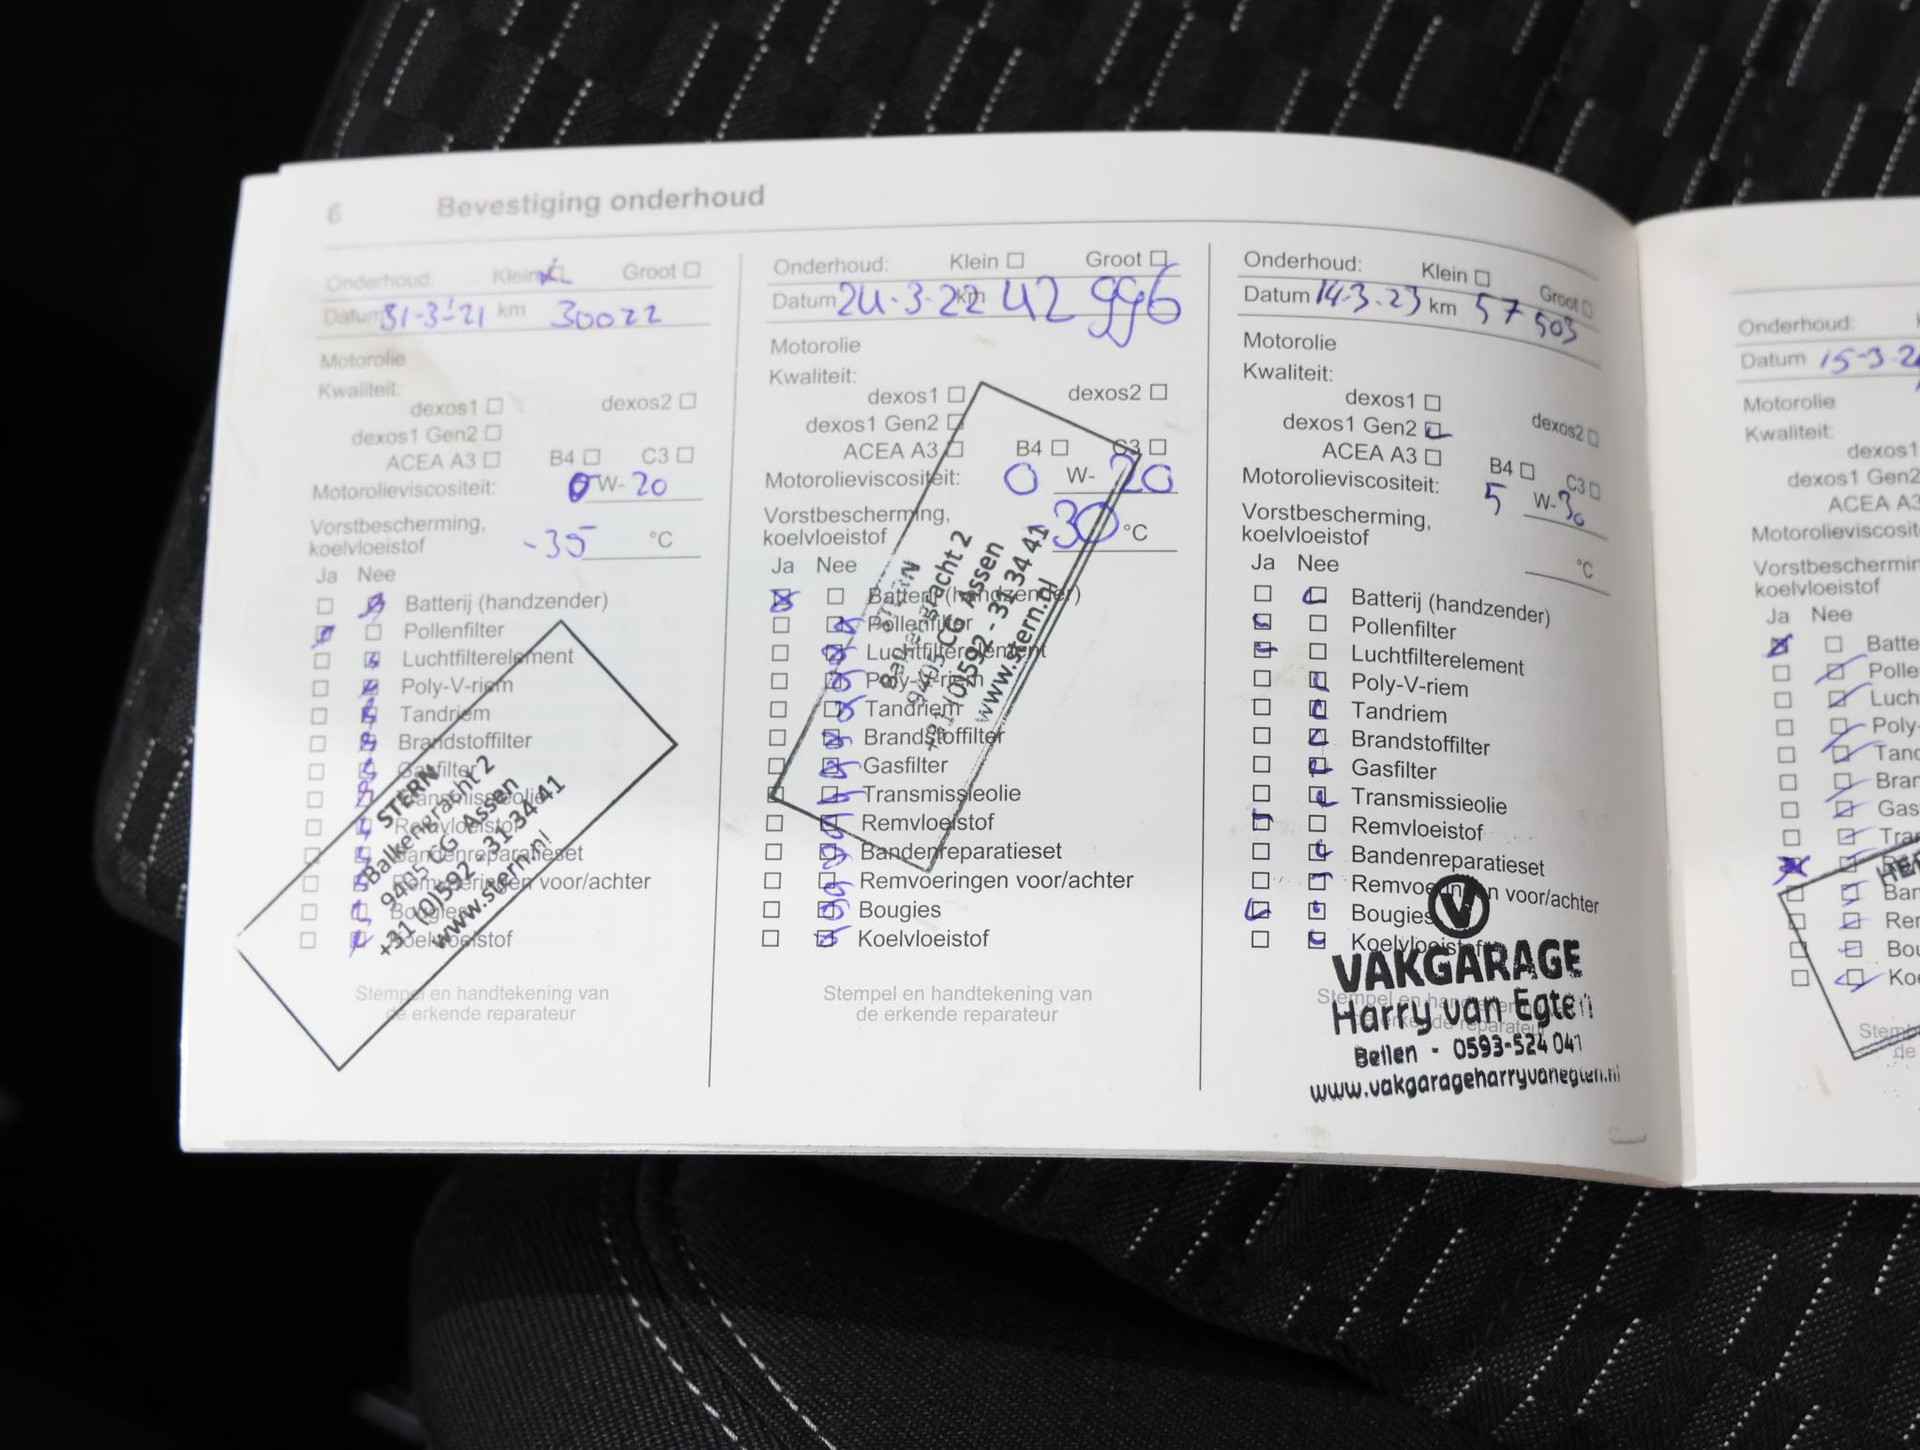 6 Bevestiging onderhoud
Onderhoud: Klein Groot
Datum 31-3-'21 km 30022
Motorolie
Kwaliteit:
dexos1 dexos2
dexos1 Gen2
ACEA A3 B4 C3
Motorolieviscositeit: 0 W- 20
Vorstbescherming,
koelvloeistof -35 °C
Ja Nee
Batterij (handzender)
Pollenfilter
Luchtfilterelement
Poly-V-riem
Tandriem
Brandstoffilter
Gasfilter
Transmissieolie
Remvloeistof
Bandenreparatieset
Remvoeringen voor/achter
Bougies
Koelvloeistof
STERN
Balkengracht 2
9405 CG Assen
+31 (0)592 - 31 34 41
www.stern.nl
Stempel en handtekening van
de erkende reparateur
Onderhoud: Klein Groot
Datum 24-3-22 km 42 996
Motorolie
Kwaliteit:
dexos1 dexos2
dexos1 Gen2
ACEA A3 B4 C3
Motorolieviscositeit: 0 W- 20
Vorstbescherming,
koelvloeistof 30 °C
Ja Nee
Batterij (handzender)
Pollenfilter
Luchtfilterelement
Poly-V-riem
Tandriem
Brandstoffilter
Gasfilter
Transmissieolie
Remvloeistof
Bandenreparatieset
Remvoeringen voor/achter
Bougies
Koelvloeistof
STERN
Balkengracht 2
9405 CG Assen
+31 (0)592 - 31 34 41
www.stern.nl
Stempel en handtekening van
de erkende reparateur
Onderhoud: Klein Groot
Datum 14-3-23 km 57 503
Motorolie
Kwaliteit:
dexos1 dexos2
dexos1 Gen2
ACEA A3 B4 C3
Motorolieviscositeit: 5 W-30
Vorstbescherming,
koelvloeistof °C
Ja Nee
Batterij (handzender)
Pollenfilter
Luchtfilterelement
Poly-V-riem
Tandriem
Brandstoffilter
Gasfilter
Transmissieolie
Remvloeistof
Bandenreparatieset
Remvoeringen voor/achter
Bougies
Koelvloeistof
Stempel en handtekening van
de erkende reparateur
VAKGARAGE
Harry van Egten
Beilen - 0593-524 041
www.vakgarageharryvanegten.nl
Onderhoud:
Datum 15-3-2
Motorolie
Kwaliteit:
dexos1
dexos1 Gen2
ACEA A3
Motorolieviscosit
Vorstbeschermin
koelvloeistof
Ja Nee
Batte
Polle
Luch
Poly-
Tand
Bran
Gas
Tran
Ban
Rem
Bou
Koe
Stemp
de